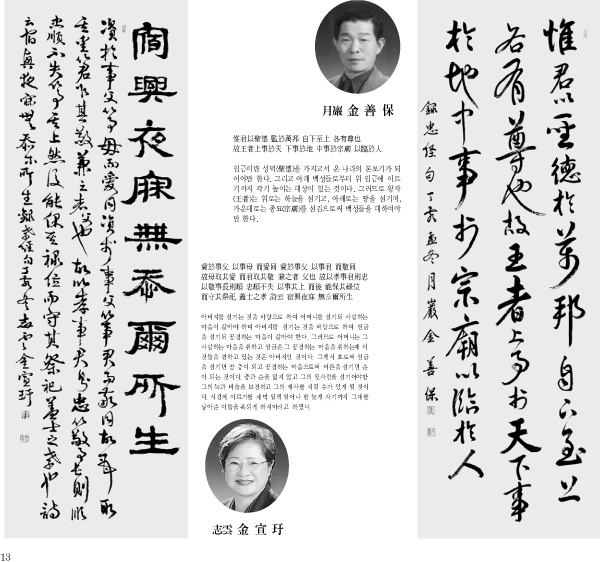 惟君以聖德於萬邦自下至上
各有尊也故王者上事於天下事
於地中事於宗廟以臨於人
錄忠經句丁亥孟冬月巖金善保
月巖 金善保
惟君以聖德 監於萬邦 自下至上 各有尊也
故王者上事於天 下事於地 中事於宗廟 以臨於人
임금이란 성덕(聖德)을 가지고서 온 나라의 본보기가 되
이야만 한다. 그리고 아래 백성들로부터 위 임금에 이르
기까지 각기 높이는 대상이 있는 것이다. 그러므로 왕자
(王者)는 위로는 하늘을 섬기고, 아래로는 땅을 섬기며,
가운데로는 종묘(宗廟)를 섬김으로써 백성들을 대하여야
만 한다.
資於事父 以事母 而愛同 資於事父 以事君 而敬同
故母取其愛 而君取其敬 兼之者 父也 故以孝事君則忠
以敬事長則順 忠順不失 以事其上 然而後 能保其祿位
而守其祭祀 蓋士之孝 詩云 夙興夜寐 無忝爾所生
아버지를 섬기는 것을 바탕으로 하여 어머니를 섬기되 사랑하는
마음이 같아야 하며 아버지를 섬기는 것을 바탕으로 하여 임금
을 섬기되 공경하는 마음이 같아야 한다. 그러므로 어머니는 그
사랑하는 마음을 취하고 임금은 그 공경하는 마음을 취하는데 이
것들을 겸하고 있는 것은 아버지인 것이다. 그래서 효로써 임금
을 섬기면 곧 충이 되고 공경하는 마음으로써 어른을 섬기면 순
이 되는 것이다. 충과 순을 잃지 않고 그의 윗사람을 섬기어야만
그의 녹과 벼슬을 보전하고 그의 제사를 지킬 수가 있게 될 것이
다. 시경에 이르기를 새벽 일찍 일어나 밤 늦게 자기까지 그대를
낳아준 이들을 욕되게 하지마라고 하였다.
志雲 金宣玗
夙興夜寐無忝爾所生
資於事父以事母而愛同資於事父以事君而敬同故母取
其愛而君取其敬兼之者父也故以孝事君則忠以敬事長則順
忠順不失以事其上然後能保其祿位而守其祭祀蓋士之孝也詩
云夙興夜寐無忝爾所生錄孝經句丁亥冬志雲金宣玗
13